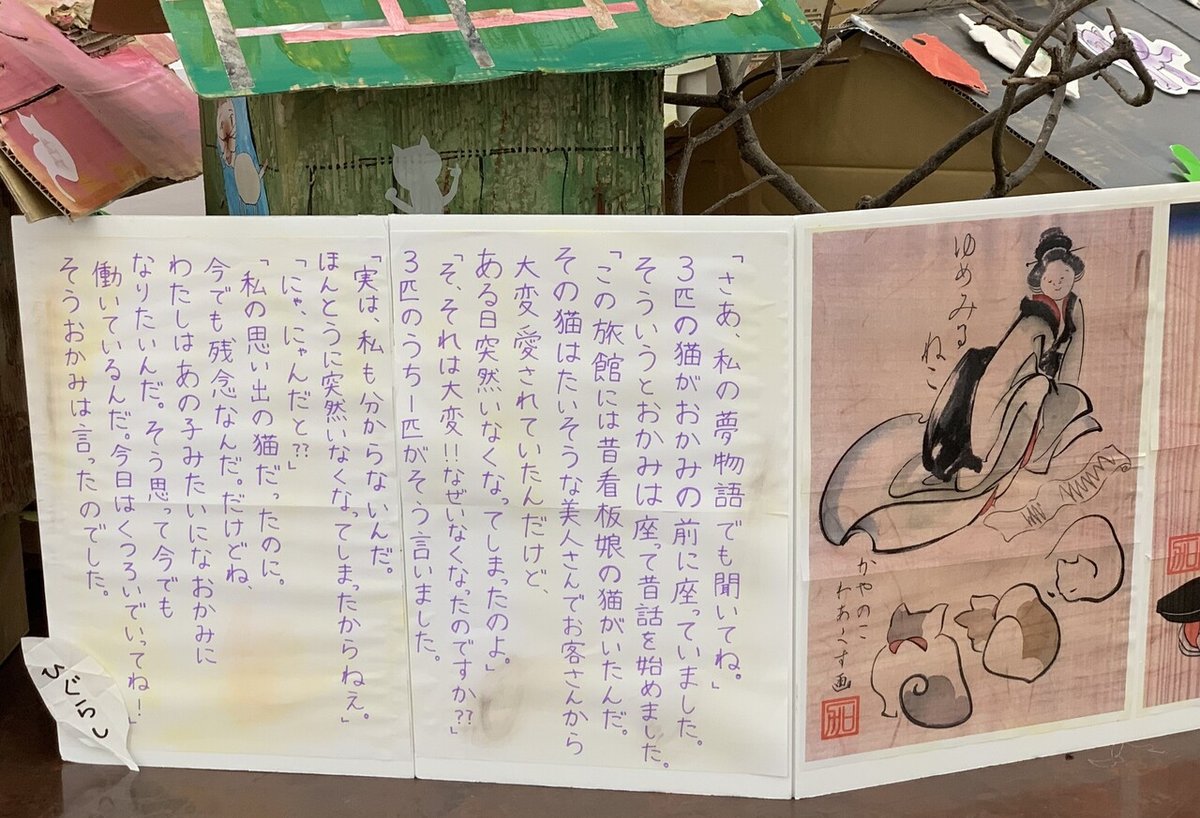 ゆめみる
ねこ
かやのこ
わあくす画
「さあ、私の夢物語でも聞いてね。」
３匹の猫がおかみの前に座っていました。
そういうとおかみは座って昔話を始めました。
「この旅館には昔看板娘の猫がいたんだ。
その猫はたいそうな美人さんでお客さんから
大変愛されていたんだけど、
ある日突然いなくなってしまったのよ。」
「そ、それは大変!!なぜいなくなったのですか??」
３匹のうち一匹がそう言いました。
「実は、私も分からないんだ。
ほんとうに突然いなくなってしまったからねぇ。」
「にゃ、にゃんだと??」
「私の思い出の猫だったのに。
今でも残念なんだ。だけどね、
わたしはあの子みたいになおかみに
なりたいんだ。そう思って今でも
働いているんだ。今日はくつろいでいってね!」
そうおかみは言ったのでした。
ひぐらし